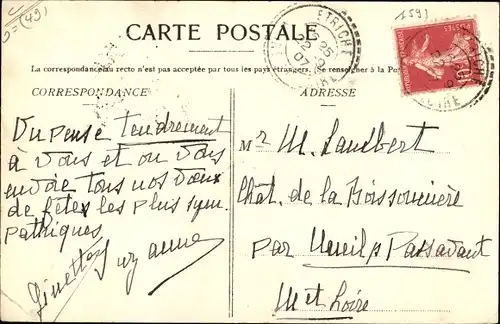 (49)
1591
CARTE POSTALE
ETRICHÉ
25
07
La correspondance au recto n'est pas acceptée par tous les pays étrangers. (Se renseigner à la Poste
CORRESPONDANCE
ADRESSE
On pense tendrement
à vous et on vous
envoie tous nos vœux
de fêtes les plus sym
pathiques.
Ginette Suzanne
Mr M. Lambert
Chât. de la Boissonnière
par Nueil s/ Passavant
M et Loire
POSTES
10